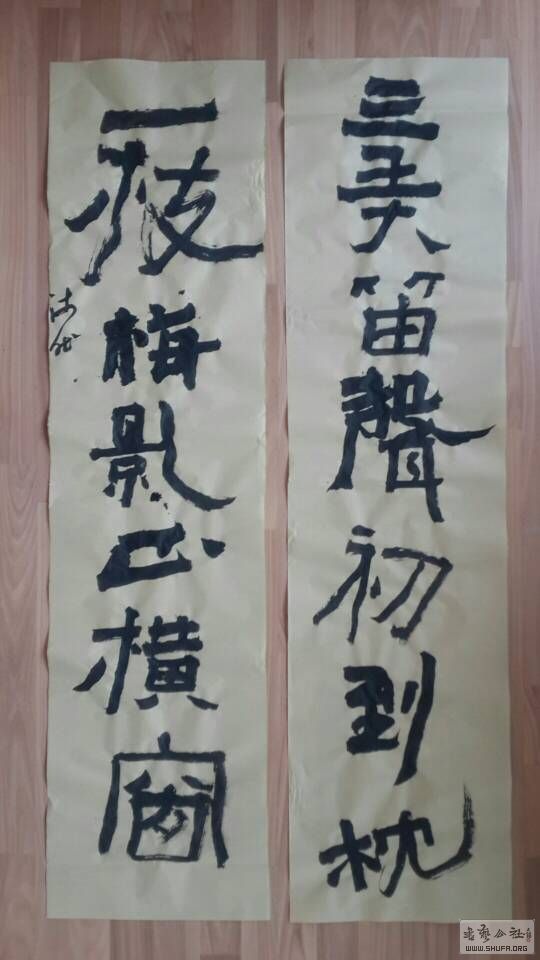 三弄笛聲初到枕
一枝梅影正橫窗
书艺公社
WWW.SHUFA.ORG